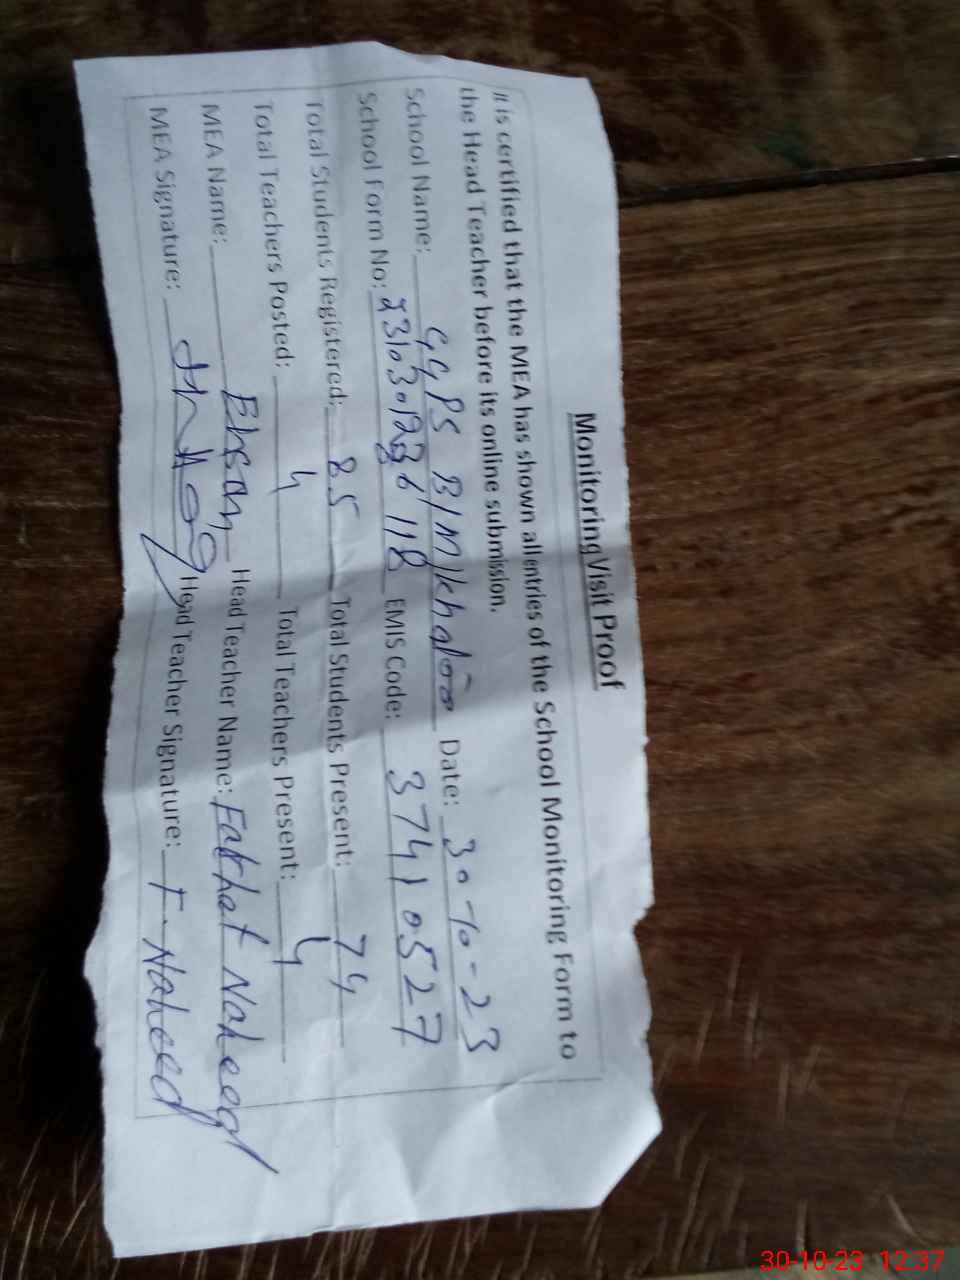 Monitoring Visit Proof
It is certified that the MEA has shown all entries of the School Monitoring Form to
the Head Teacher before its online submission.
School Name: GGPS B/M Date: 30-10-23
School Form No: EMIS Code: 37410527
Total Students Registered: 85 Total Students Present: 74
Total Teachers Posted: 4 Total Teachers Present: 4
MEA Name: Ehsan Head Teacher Name: Farhat Naheed
MEA Signature: Head Teacher Signature: F. Naheed
30-10-23 12:37